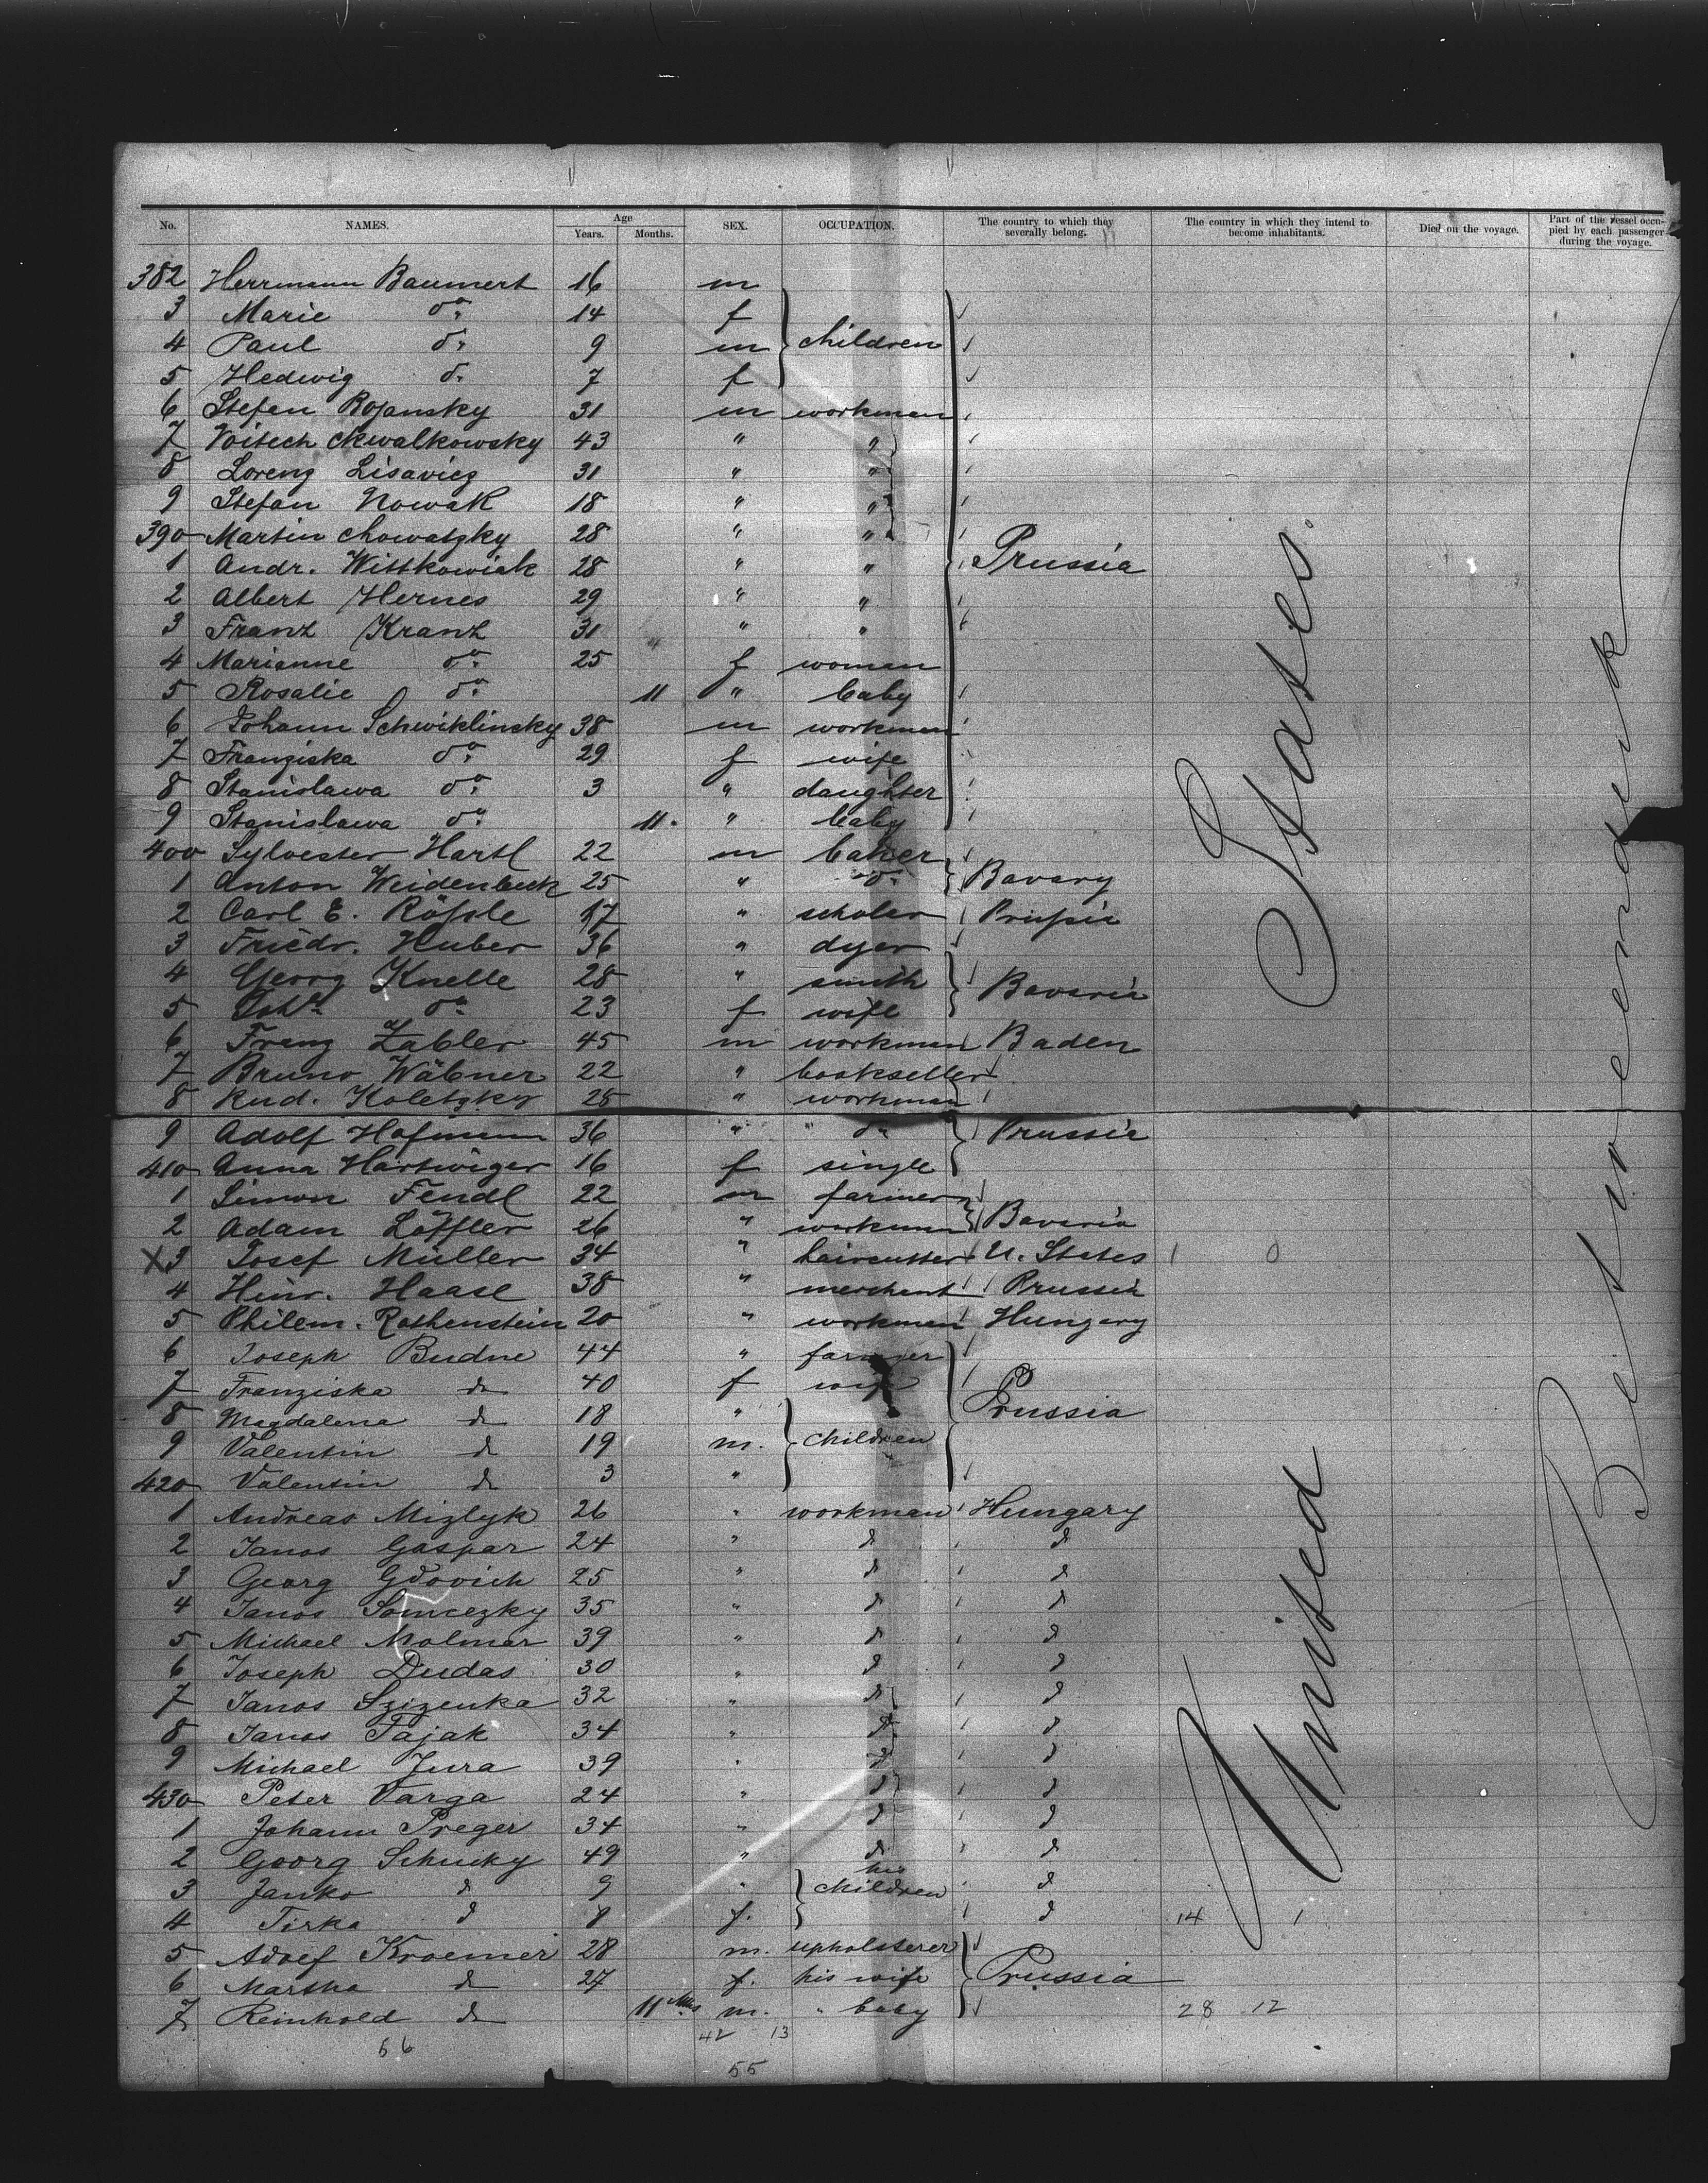 No. NAMES. Age Years. Months. SEX. OCCUPATION. The country to which they severally belong. The country in which they intend to become inhabitants. Died on the voyage. Part of the vessel occupied by each passenger during the voyage.
382 Herrmann Baumert 16 m
3 Marie do. 14 f
4 Paul do. 9 m children
5 Hedwig do. 7 f
6 Stefan Rojansky 31 m workman
7 Voitech Chwalkowsky 43 " "
8 Lorenz Lisavicz 31 " "
9 Stefan Nowak 18 " "
390 Martin Chowatzky 28 " "
1 Andr. Wittkowiak 28 " " Prussia
2 Albert Hernes 29 " "
3 Franz Kranz 31 " "
4 Marianne do. 25 f woman
5 Rosalie do. 11 " baby
6 Johann Schwiklinsky 38 m workman
7 Franziska do. 29 f wife
8 Stanislawa do. 3 " daughter
9 Stanislawa do. 11. " baby
400 Sylvester Hartl 22 m baker
1 Anton Weidenbeck 25 " do. Bavary
2 Carl E. Rößle 17 " scholar Prussia
3 Friedr. Huber 36 " dyer
4 Georg Knelle 28 " smith Bavaria
5 Joh. do. 23 f wife
6 Franz Zabler 45 m workman Baden
7 Bruno Wäbner 22 " bookseller
8 Rud. Koletzky 25 " workman
9 Adolf Hofmann 36 " " do. Prussia
410 Anna Hartwiger 16 f single
1 Simon Fendl 22 m farmer
2 Adam Löffler 26 " workman Bavaria
X3 Josef Müller 34 " haircutter U. States 1 0
4 Hinr. Haase 38 " merchant Prussia
5 Philem. Rothenstein 20 " workman Hungary
6 Joseph Budne 44 " farmer
7 Franziska do 40 f wife
8 Magdalena do 18 " Prussia
9 Valentin do 19 m. children
420 Valentin do 3 "
1 Andreas Mizlyk 26 " workman Hungary
2 Janos Gaspar 24 " do do
3 Georg Gdovich 25 " do do
4 Janos Somcezky 35 " do do
5 Michael Molnar 39 " do do
6 Joseph Dudas 30 " do do
7 Janos Szizenka 32 " do do
8 Janos Tajak 34 " do do
9 Michael Jura 39 " do do
430 Peter Varga 24 " do do
1 Johann Preger 34 " do do
2 Georg Schucky 49 " do do
3 Janko do 9 " his children do
4 Tirka do 8 f. do 14 1
5 Adolf Kroemer 28 m. upholsterer
6 Martha do 27 f. his wife Prussia
7 Reinhold do 11 Mts m. " baby 28 12
56 42 13
55
United States
Between deck